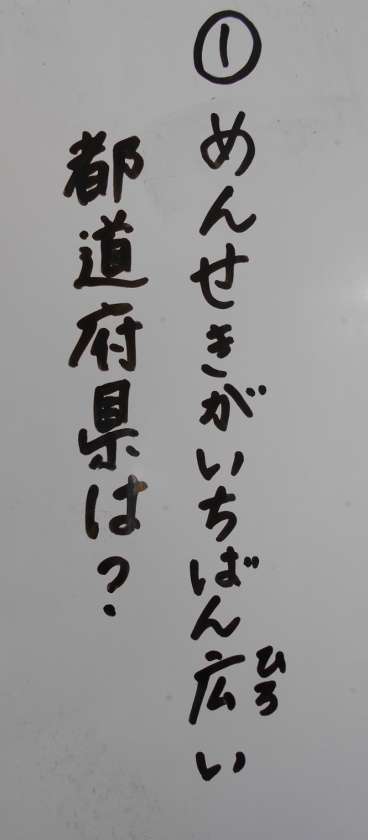 ① めんせきがいちばん広い
ひろ
都道府県は?